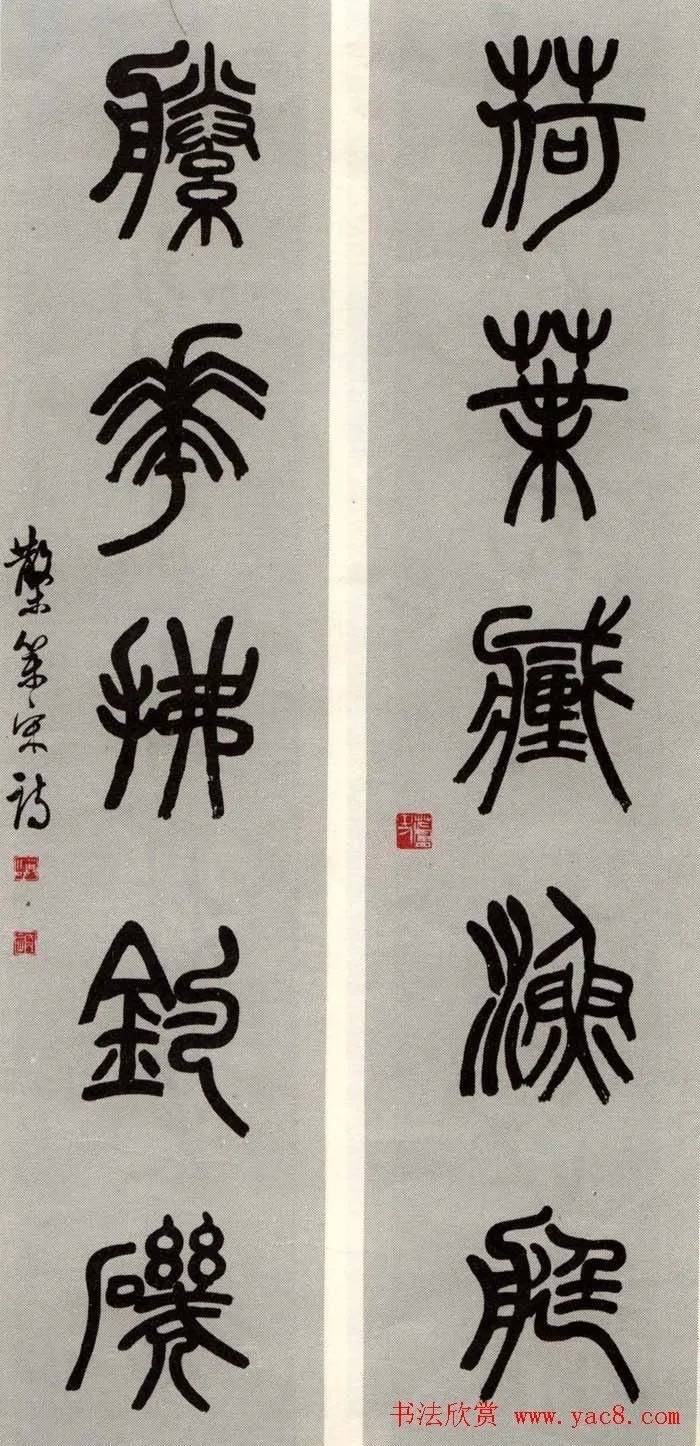 荷葉藏漁艇
縢花拂釣磯
散木篆宋詩
书法欣赏 www.yac8.com